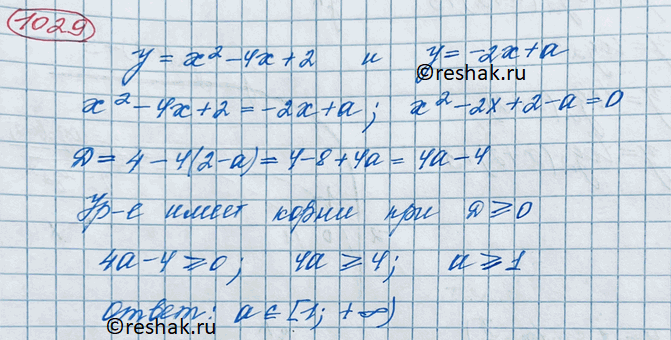 1029
y = x² - 4x + 2 и y = -2x + a
©reshak.ru
x² - 4x + 2 = -2x + a; x² - 2x + 2 - a = 0
D = 4 - 4(2 - a) = 4 - 8 + 4a = 4a - 4
Ур-е имеет корни при D ⩾ 0
4a - 4 ⩾ 0; 4a ⩾ 4; a ⩾ 1
Ответ: a ∈ [1; +∞)
©reshak.ru